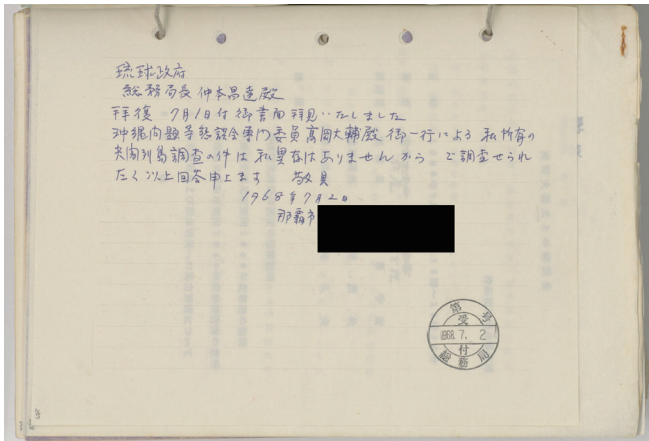 琉球政府
総務局長 仲本昌達殿
拝復 7月1日付御書面拝見いたしました
沖縄問題等懇談会専門委員高岡大輔殿御一行による私所有の
尖閣列島調査の件は私異存はありませんから ご調査せられ
たく以上回答申上ます 敬具
1968年7月2日
那覇市
第 号
受
1968. 7. 2
付
総務局